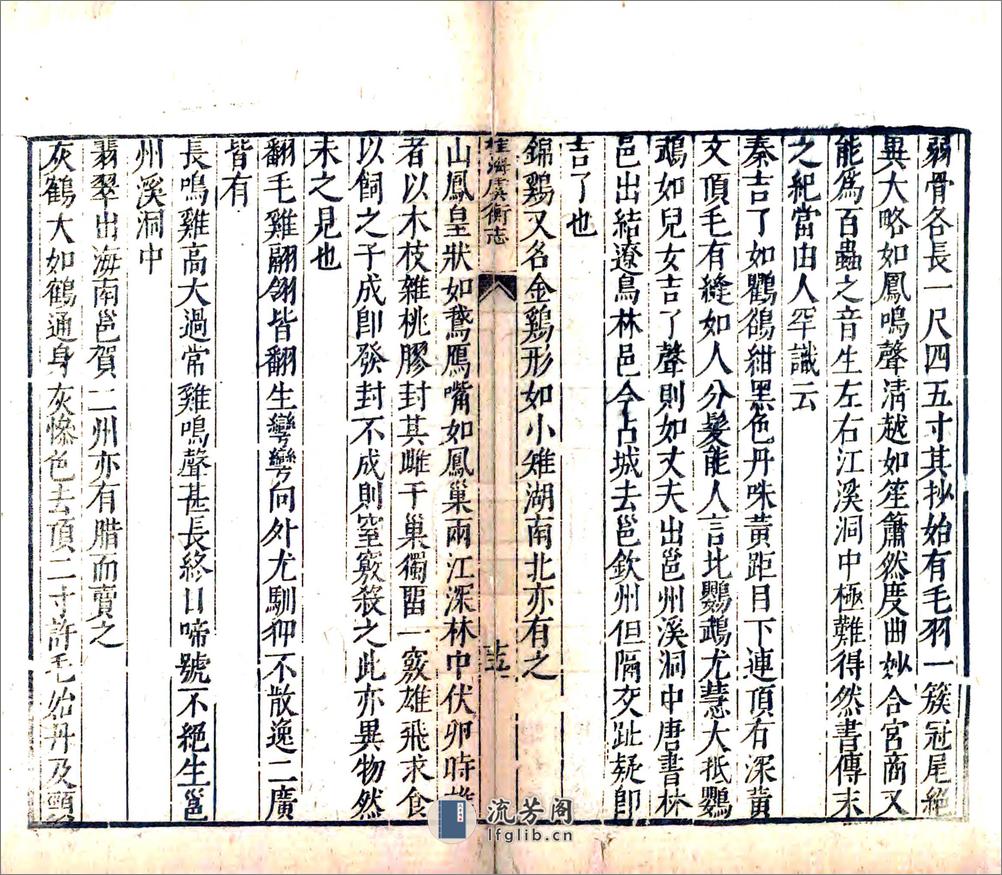 弱骨各長一尺四五寸其抄始有毛羽一簇冠尾絕
異大略如鳳鳴聲清越如笙簫然度曲妙合宮商又
能爲百蟲之音生左右江溪洞中極難得然書傳未
之紀當由人罕識云
秦吉了如鸜鵒紺黑色丹咮黃距目下連頂有深黃
文頂毛有縫如人分髮能人言比鸚鵡尤慧大抵鸚
鵡如兒女吉了聲則如丈夫出邕州溪洞中唐書林
邑出結遼鳥林邑今占城去邕欽州但隔交趾疑即
吉了也
錦鷄又名金鷄形如小雉湖南北亦有之
桂海虞衡志
山鳳皇狀如鵞鴈嘴如鳳巢兩江深林中伏卵時
者以木枝雜桃膠封其雌于巢獨留一竅雄飛求食
以飼之子成卽發封不成則窒竅殺之此亦異物然
未之見也
翻毛雞翮翎皆翻生彎彎向外尤馴狎不散逸二廣
皆有
長鳴雞高大過常雞鳴聲甚長終日啼號不絕生邕
州溪洞中
翡翠出海南邕賀二州亦有腊而賣之
灰鶴大如鶴通身灰慘色去頂二寸許毛始丹及頸
流芳阁
lfglib.cn